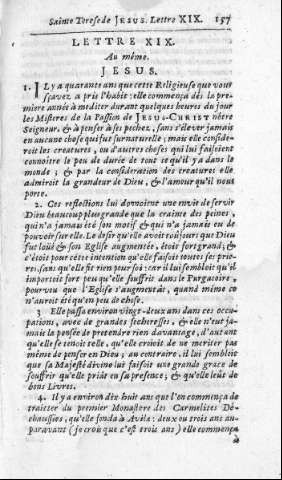 Sainte Terese de JESUS. Lettre XIX. 157
LETTRE XIX.
Au même.
JESUS.
1. IL y a quarante ans que cette Religieuse que vous
sçavez a pris l'habit : elle commença dès la pre-
miere année à mediter durant quelques heures du jour
les Misteres de la Passion de JESUS-CHRIST nôtre
Seigneur, & à penser à ses pechez, sans s'élever jamais
en aucune chose qui fut surnaturelle ; mais elle conside-
roit les creatures, ou d'autres choses qui lui faisoient
connoître le peu de durée de tout ce qu'il y a dans le
monde ; & par la consideration des creatures elle
admiroit la grandeur de Dieu, & l'amour qu'il nous
porte.
2. Ces reflexions lui donnoient une envie de servir
Dieu beaucoup plus grande que la crainte des peines,
qui n'a jamais été son motif & qui n'a jamais eu de
pouvoir sur elle. Le desir qu'elle avoit toûjours que Dieu
fut loüé & son Eglise augmentée, étoit fort grand ; &
c'étoit pour cette intention qu'elle faisoit toutes ses prie-
res, sans qu'elle fit rien pour soi : car il lui sembloit qu'il
importoit fort peu qu'elle souffrit dans le Purgatoire,
pourveu que l'Eglise s'augmentât, quand même ce
n'auroit été qu'en peu de chose.
3 Elle passa environ vingt-deux ans dans ces occu-
pations, avec de grandes secheresses, & elle n'eut ja-
mais la pensée de pretendre rien davantage, d'autant
qu'elle se tenoit telle, qu'elle croioit de ne meriter pas
même de penser en Dieu ; au contraire, il lui sembloit
que sa Majesté divine lui faisoit une grande grace de
souffrir qu'elle priât en sa presence ; & qu'elle leût de
bons Livres.
4. Il y a environ dix huit ans que l'on commença de
traitter du premier Monastere des Carmelites Dé-
chaussées, qu'elle fonda à Avila : deux ou trois ans au-
paravant ( je crois que c'est trois ans ) elle commença
à